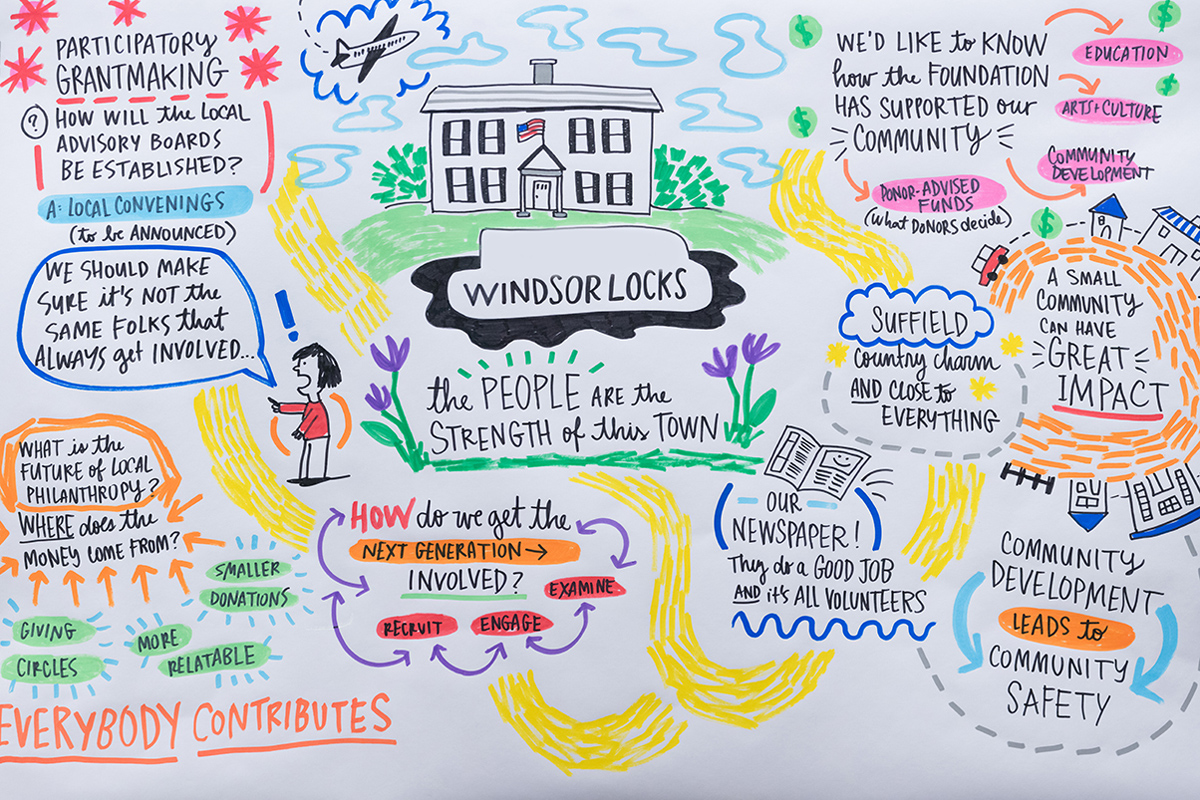 PARTICIPATORY
GRANTMAKING
?
HOW WILL the LOCAL
ADVISORY BOARDS
BE ESTABLISHED?
A: LOCAL CONVENINGS
(to be ANNOUNCED)
WE SHOULD MAKE
SURE it's NOT the
SAME FOLKS that
ALWAYS get INVOLVED...
!
WHAT is the
FUTURE of LOCAL
PHILANTHROPY?
WHERE does the
MONEY COME FROM?
SMALLER
DONATIONS
GIVING
CIRCLES
MORE
RELATABLE
EVERYBODY CONTRIBUTES
WINDSOR LOCKS
the PEOPLE ARE the
STRENGTH of this TOWN
HOW do we get the
NEXT GENERATION →
INVOLVED?
EXAMINE
ENGAGE
RECRUIT
OUR
NEWSPAPER!
They do a GOOD JOB
AND it's ALL VOLUNTEERS
WE'D LIKE to KNOW
how the FOUNDATION
HAS SUPPORTED our
COMMUNITY
$
$
$
$
$
EDUCATION
ARTS + CULTURE
COMMUNITY
DEVELOPMENT
DONOR-ADVISED
FUNDS
(what DONORS decide)
SUFFIELD
country charm
AND CLOSE to
EVERYTHING
A SMALL
COMMUNITY
CAN HAVE
GREAT
IMPACT
COMMUNITY
DEVELOPMENT
LEADS to
COMMUNITY
SAFETY